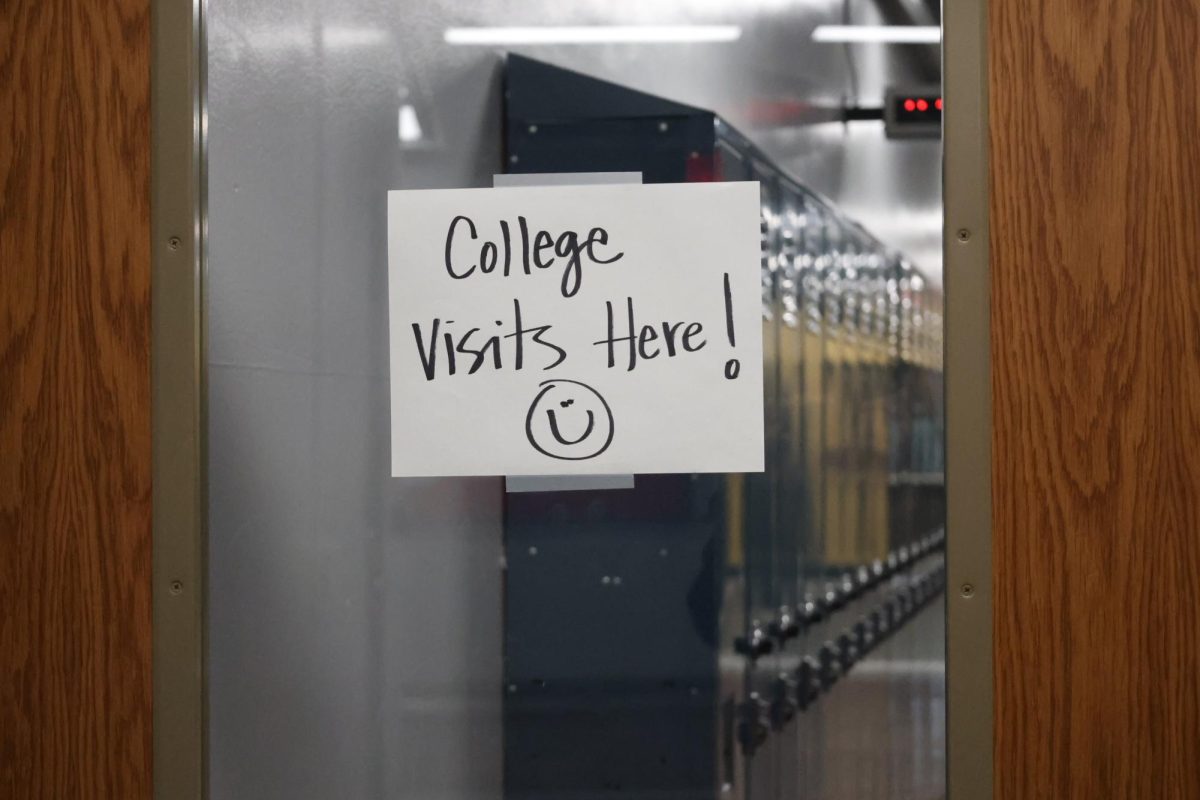 College
Visits Here!